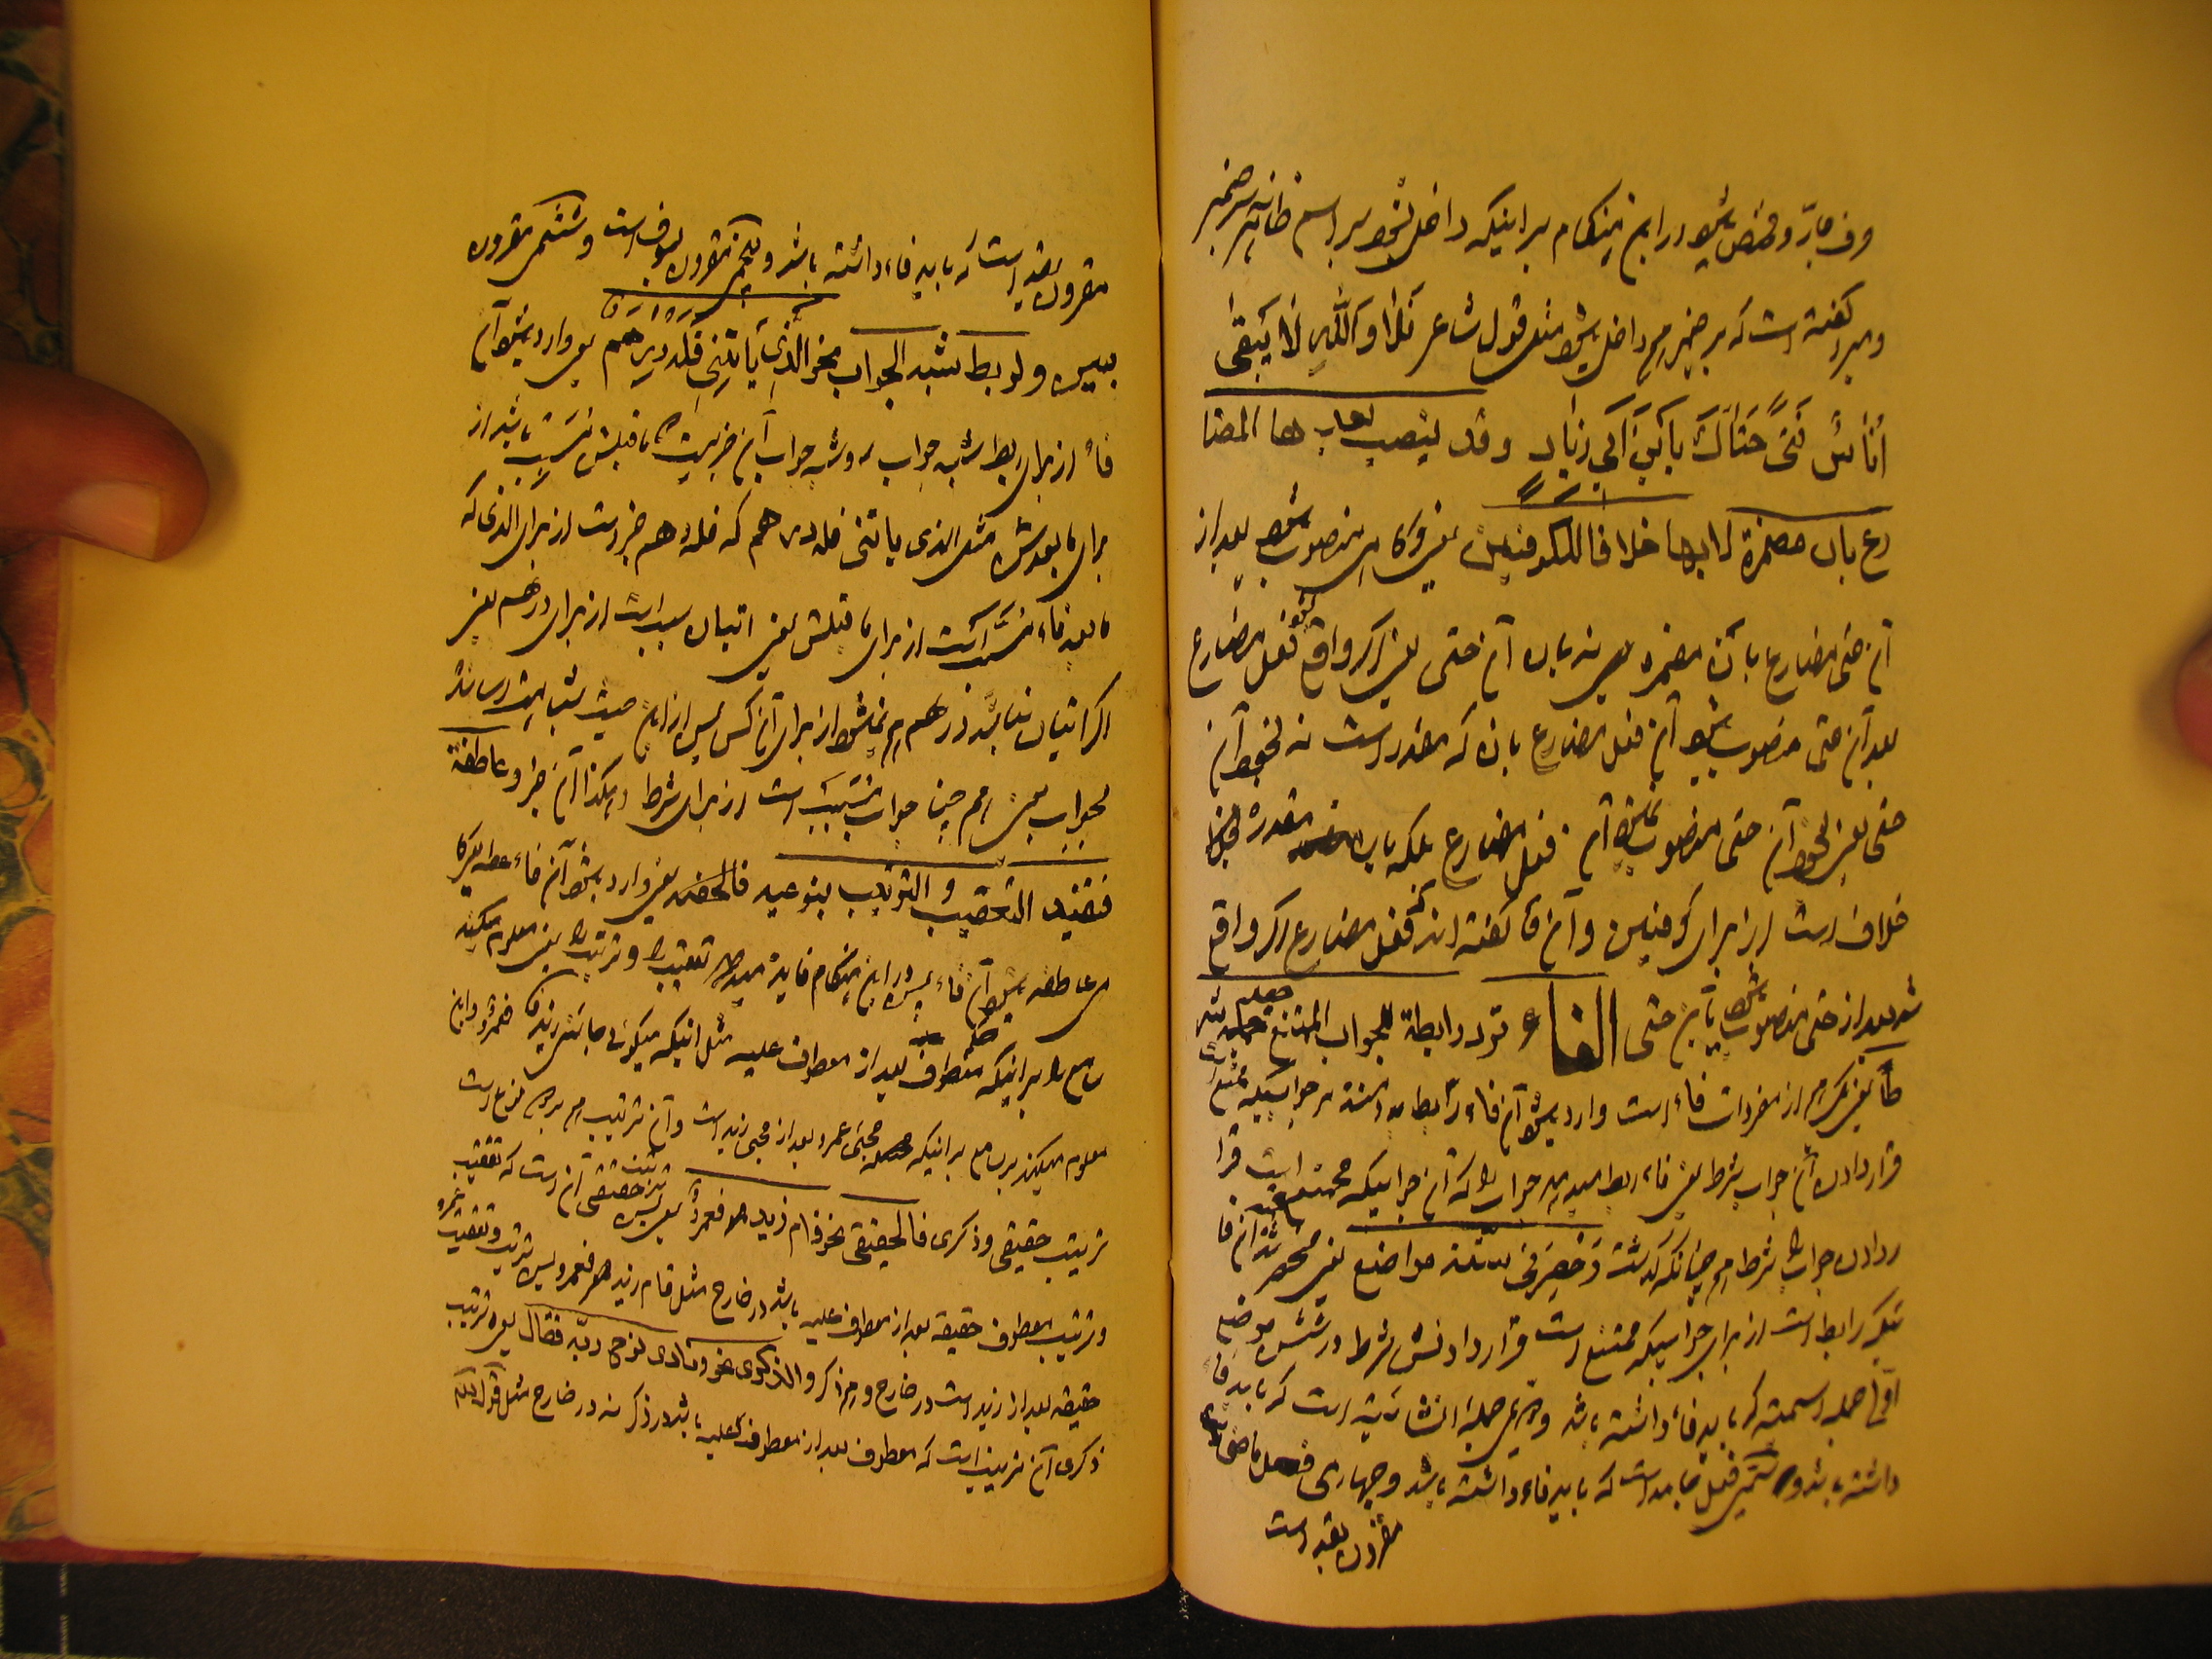 وف جارّ و مختص میشود در این هنگام بر اینکه داخل بشود بر اسم ظاهر نه بر ضمیر
و مبرد گفته است که بر ضمیر هم داخل میشود مثل قول شاعر فَلا وَاللّٰهِ لا یَبْقٰی
أُناسٌ فَتًی حَتّاكَ یا بْنَ أَبي زِیادٍ وقد ینصب بعدها المضا
رع بان مضمرة لا بها خلافا للكوفیین یعنی و گاهی منصوب میشود بعد از
آن حتی مضارع بأن مضمره یعنی نه بآن حتی یعنی اگر واقع شود فعل مضارع
بعد آن حتی منصوب میشود آن فعل مضارع بان که مقدر است نه بخود آن
حتی یعنی بخود آن حتی منصوب نمیشود آن فعل مضارع بلکه بان مقدره و این
خلاف است از برای کوفیین و آنها گفته اند که فعل مضارع اگر واقع
شد بعد از حتی منصوب میشود بآن حتی الفاء ترد رابطة للجواب الممتنع جعله شر
طاً یعنی یک هم از مفردات فاء است وارد میشود آن فاء رابط دهنده بر جوابیکه ممتنع است
قرار دادن آن جواب شرط یعنی فاء ربط میدهد جواب را که آن جوابیکه ممتنع است قرا
ر دادن جواب را شرط هم چنانکه گذشت وَحُصِرَ في ستّة مواضع یعنی منحصر شد آن فا
ئیکه رابط است از برای جوابیکه ممتنع است قرار دادنش شرط در شش موضع
اوّل جمله اسمیّه که باید فاء داشته باشد و دویمی جملهٔ انشائیّه است که باید فاء
داشته باشد و سیمی فعل جامد است که باید فاء داشته باشد و چهارمی فعل ماضی
مقرون بقد است
مقرون بقد است که باید فاء داشته باشد و پنجمی مقرون بسوف است و ششمی مقرون
بسین و لربط شبه الجواب نحو الّذي یأتیني فله درهم یعنی وارد میشود آن
فاء از برای ربط شبه جواب و شبه جواب آن خبریست که ماقبلش سبب باشد از
برای ما بعدش مثل الذی یاتینی فله درهم که فله درهم خبر است از برای الذی که
ما بعد فاء مسبّب است از برای ما قبلش یعنی اتیان سبب است از برای درهم یعنی
اگر اتیان نباشد درهم هم نمیشود از برای آن کس پس از این حیث شباهت رساند
بجواب یعنی هم چنین جواب مسبّب است از برای شرط و هکذا آن خبر و عاطفة
فتفید التعقیب والترتیب بنوعیه فالحقیقی یعنی وارد میشود آن فاء عاطفه یعنی گا
هی عاطفه میشود آن فاء پس در این هنگام فایده میدهد تعقیب را و ترتیب را یعنی معلوم میکند
سامع را بر اینکه معطوف بعد از معطوف علیه مثل اینکه میگوئی جائنی زید فعمرو و این
معلوم میکند بر سامع بر اینکه مجیئی عمرو بعد از مجیئی زید است و آن ترتیب هم بر دو نوع است
ترتیب حقیقی و ذکری فالحقیقی نحو قام زید فعمرو یعنی ترتیب حقیقی آن است که تعقیب
و ترتیب معطوف حقیقة بعد از معطوف علیه باشد در خارج مثل قام زید فعمرو پس ترتیب و تعقیب عمرو
حقیقة بعد از زید است در خارج و هم ذکر والذکري نحو ونادی نوح ربّه فقال یعنی ترتیب
ذکری آن ترتیب است که معطوف بعد از معطوف علیه باشد در ذکر نه در خارج مثل قوله تعالی